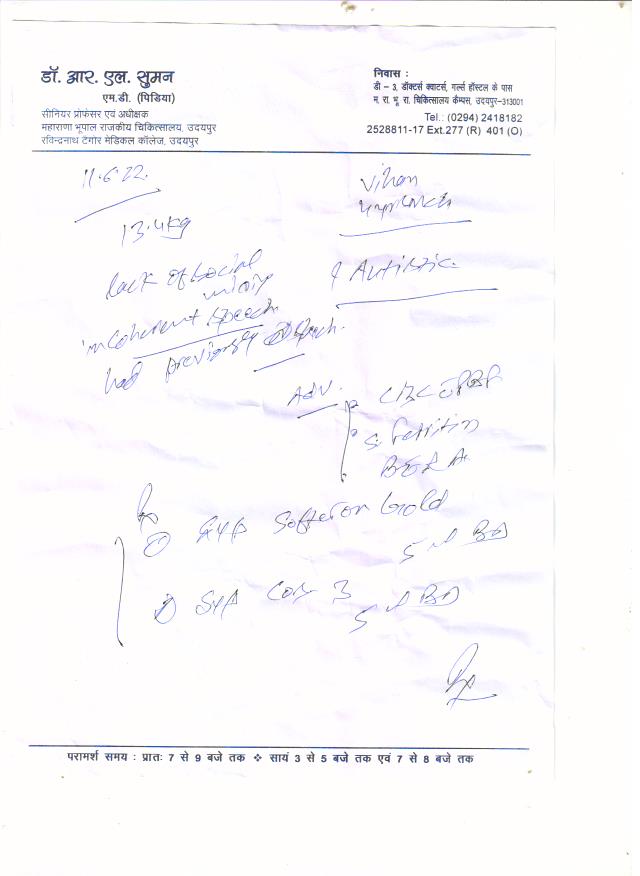 डॉ. आर. एल. सुमन
एम.डी. (पिडिया)
सीनियर प्रोफेसर एवं अधीक्षक
महाराणा भूपाल राजकीय चिकित्सालय, उदयपुर
रविन्द्रनाथ टैगोर मेडिकल कॉलेज, उदयपुर
निवास :
डी – 3, डॉक्टर्स क्वाटर्स, गर्ल्स हॉस्टल के पास
म. रा. भू. रा. चिकित्सालय कैम्पस, उदयपुर-313001
Tel.: (0294) 2418182
2528811-17 Ext.277 (R) 401 (O)
11.6.22.
Vihan
13.4kg
lack of social
? Autistic
incoherent speech
had previously speech.
Adv.
CBC PBF
S. Ferritin
BERA
Rx
① Syp Softeron Gold
5 ml BD
② Syp 3
5 ml BD
परामर्श समय : प्रातः 7 से 9 बजे तक ❖ सायं 3 से 5 बजे तक एवं 7 से 8 बजे तक